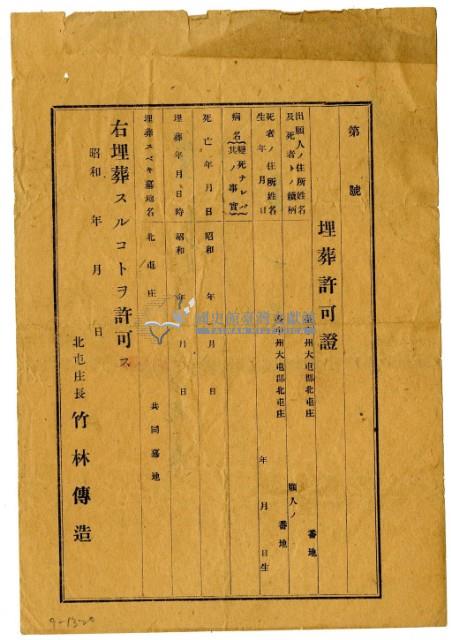 第 號
埋葬許可證
出願人ノ住所姓名
及死者トノ續柄
臺中州大屯郡北屯庄 番地
願人ノ
死者ノ住所姓名
生年月日
臺中州大屯郡北屯庄 番地
年 月 日生
病名 變死ナレバ其ノ事實
死亡年月日 昭和 年 月 日
埋葬年月日時 昭和 年 月 日
埋葬スベキ墓地名 北屯庄 共同墓地
右埋葬スルコトヲ許可ス
昭和 年 月 日
北屯庄長 竹林傳造
國史館臺灣文獻館
TAIWAN HISTORICA
9-13-20